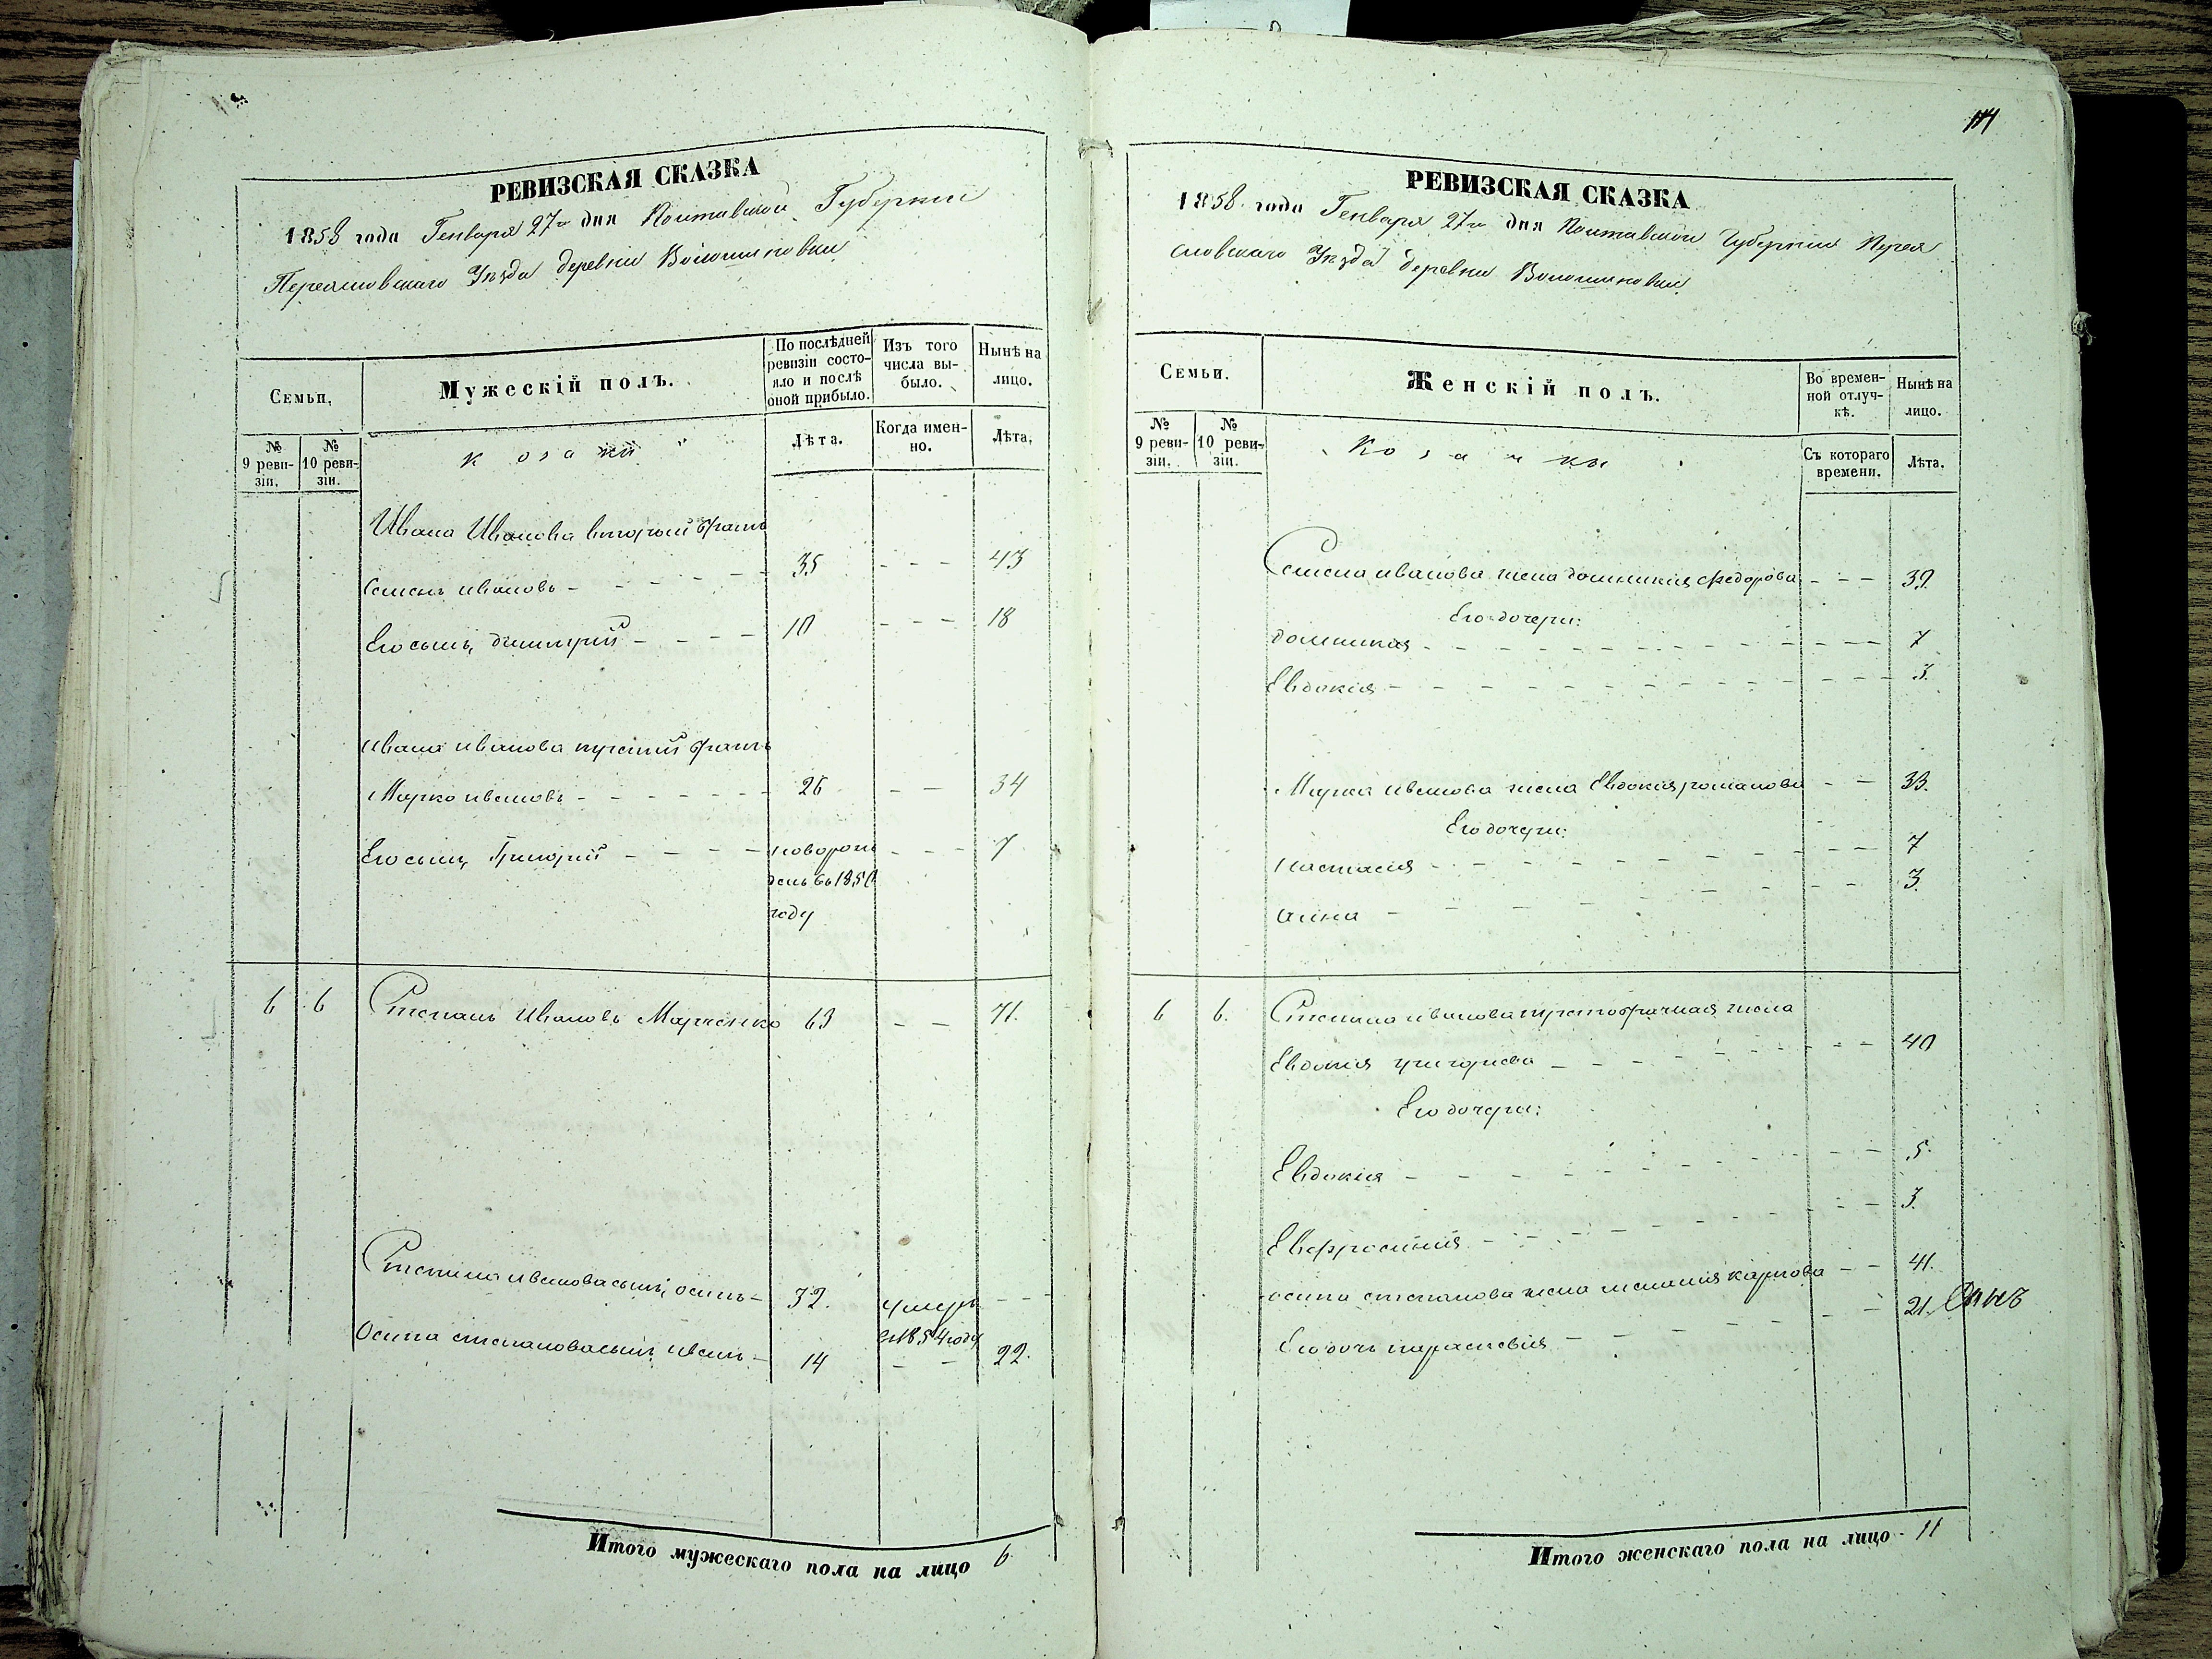 РЕВИЗСКАЯ СКАЗКА
1858 года Генваря 27го дня Полтавской Губернии
Переяславскаго Уѣзда деревни Волошиновки
Семьи.
Мужескій полъ.
По послѣдней ревизіи состояло и послѣ оной прибыло.
Изъ того числа выбыло.
Нынѣ на лицо.
№ 9 ревизіи.
№ 10 ревизіи.
Козаки
Лѣта.
Когда именно.
Лѣта.
Ивана Иванова вторый братъ
Семенъ Ивановъ - - - - - - 35 - - - 43
Его сынъ, димитрій - - - - 10 - - - 18
Ивана Иванова третій братъ
Марко Ивановъ - - - - - - - 26 - - 34
Его сынъ, Григорій - - - - - новорож - - - 7
денъ въ 1850
году
6 6 Степанъ Ивановъ Марченко 63 - - 71.
Степана Иванова сынъ, осипъ - 32. умеръ - - -
въ 1854 году
Осипа степанова сынъ иванъ - 14 - - 22.
Итого мужескаго пола на лицо 6
114
РЕВИЗСКАЯ СКАЗКА
1858 года Генваря 27го дня Полтавской Губернии Перея
славскаго Уѣзда деревни Волошиновки
Семьи.
Женскій полъ.
Во временной отлучкѣ.
Нынѣ на лицо.
№ 9 ревизіи.
№ 10 ревизіи.
Козачки
Съ котораго времени.
Лѣта.
Семена иванова жена домникія Федорова - - - 39.
Его дочери:
домникія - - - - - - - - - - - - - - 7
Евдокія - - - - - - - - - - - - - - 3.
Марка иванова жена Евдокія романова - - 33.
Его дочери:
Настасія - - - - - - - - - - - - - 7
анна - - - - - - - - - 3.
6 6. Степана иванова третобрачная жена
Евдокія григорьева - - - - - - - - - - 40
Его дочери:
Евдокія - - - - - - - - - - - - - 5.
Евфросинія - - - - - - - - - - - 3.
осипа степанова жена меланія карпова - - 41.
Его дочь параскевія - - - - - - - - - 21.
Итого женскаго пола на лицо 11